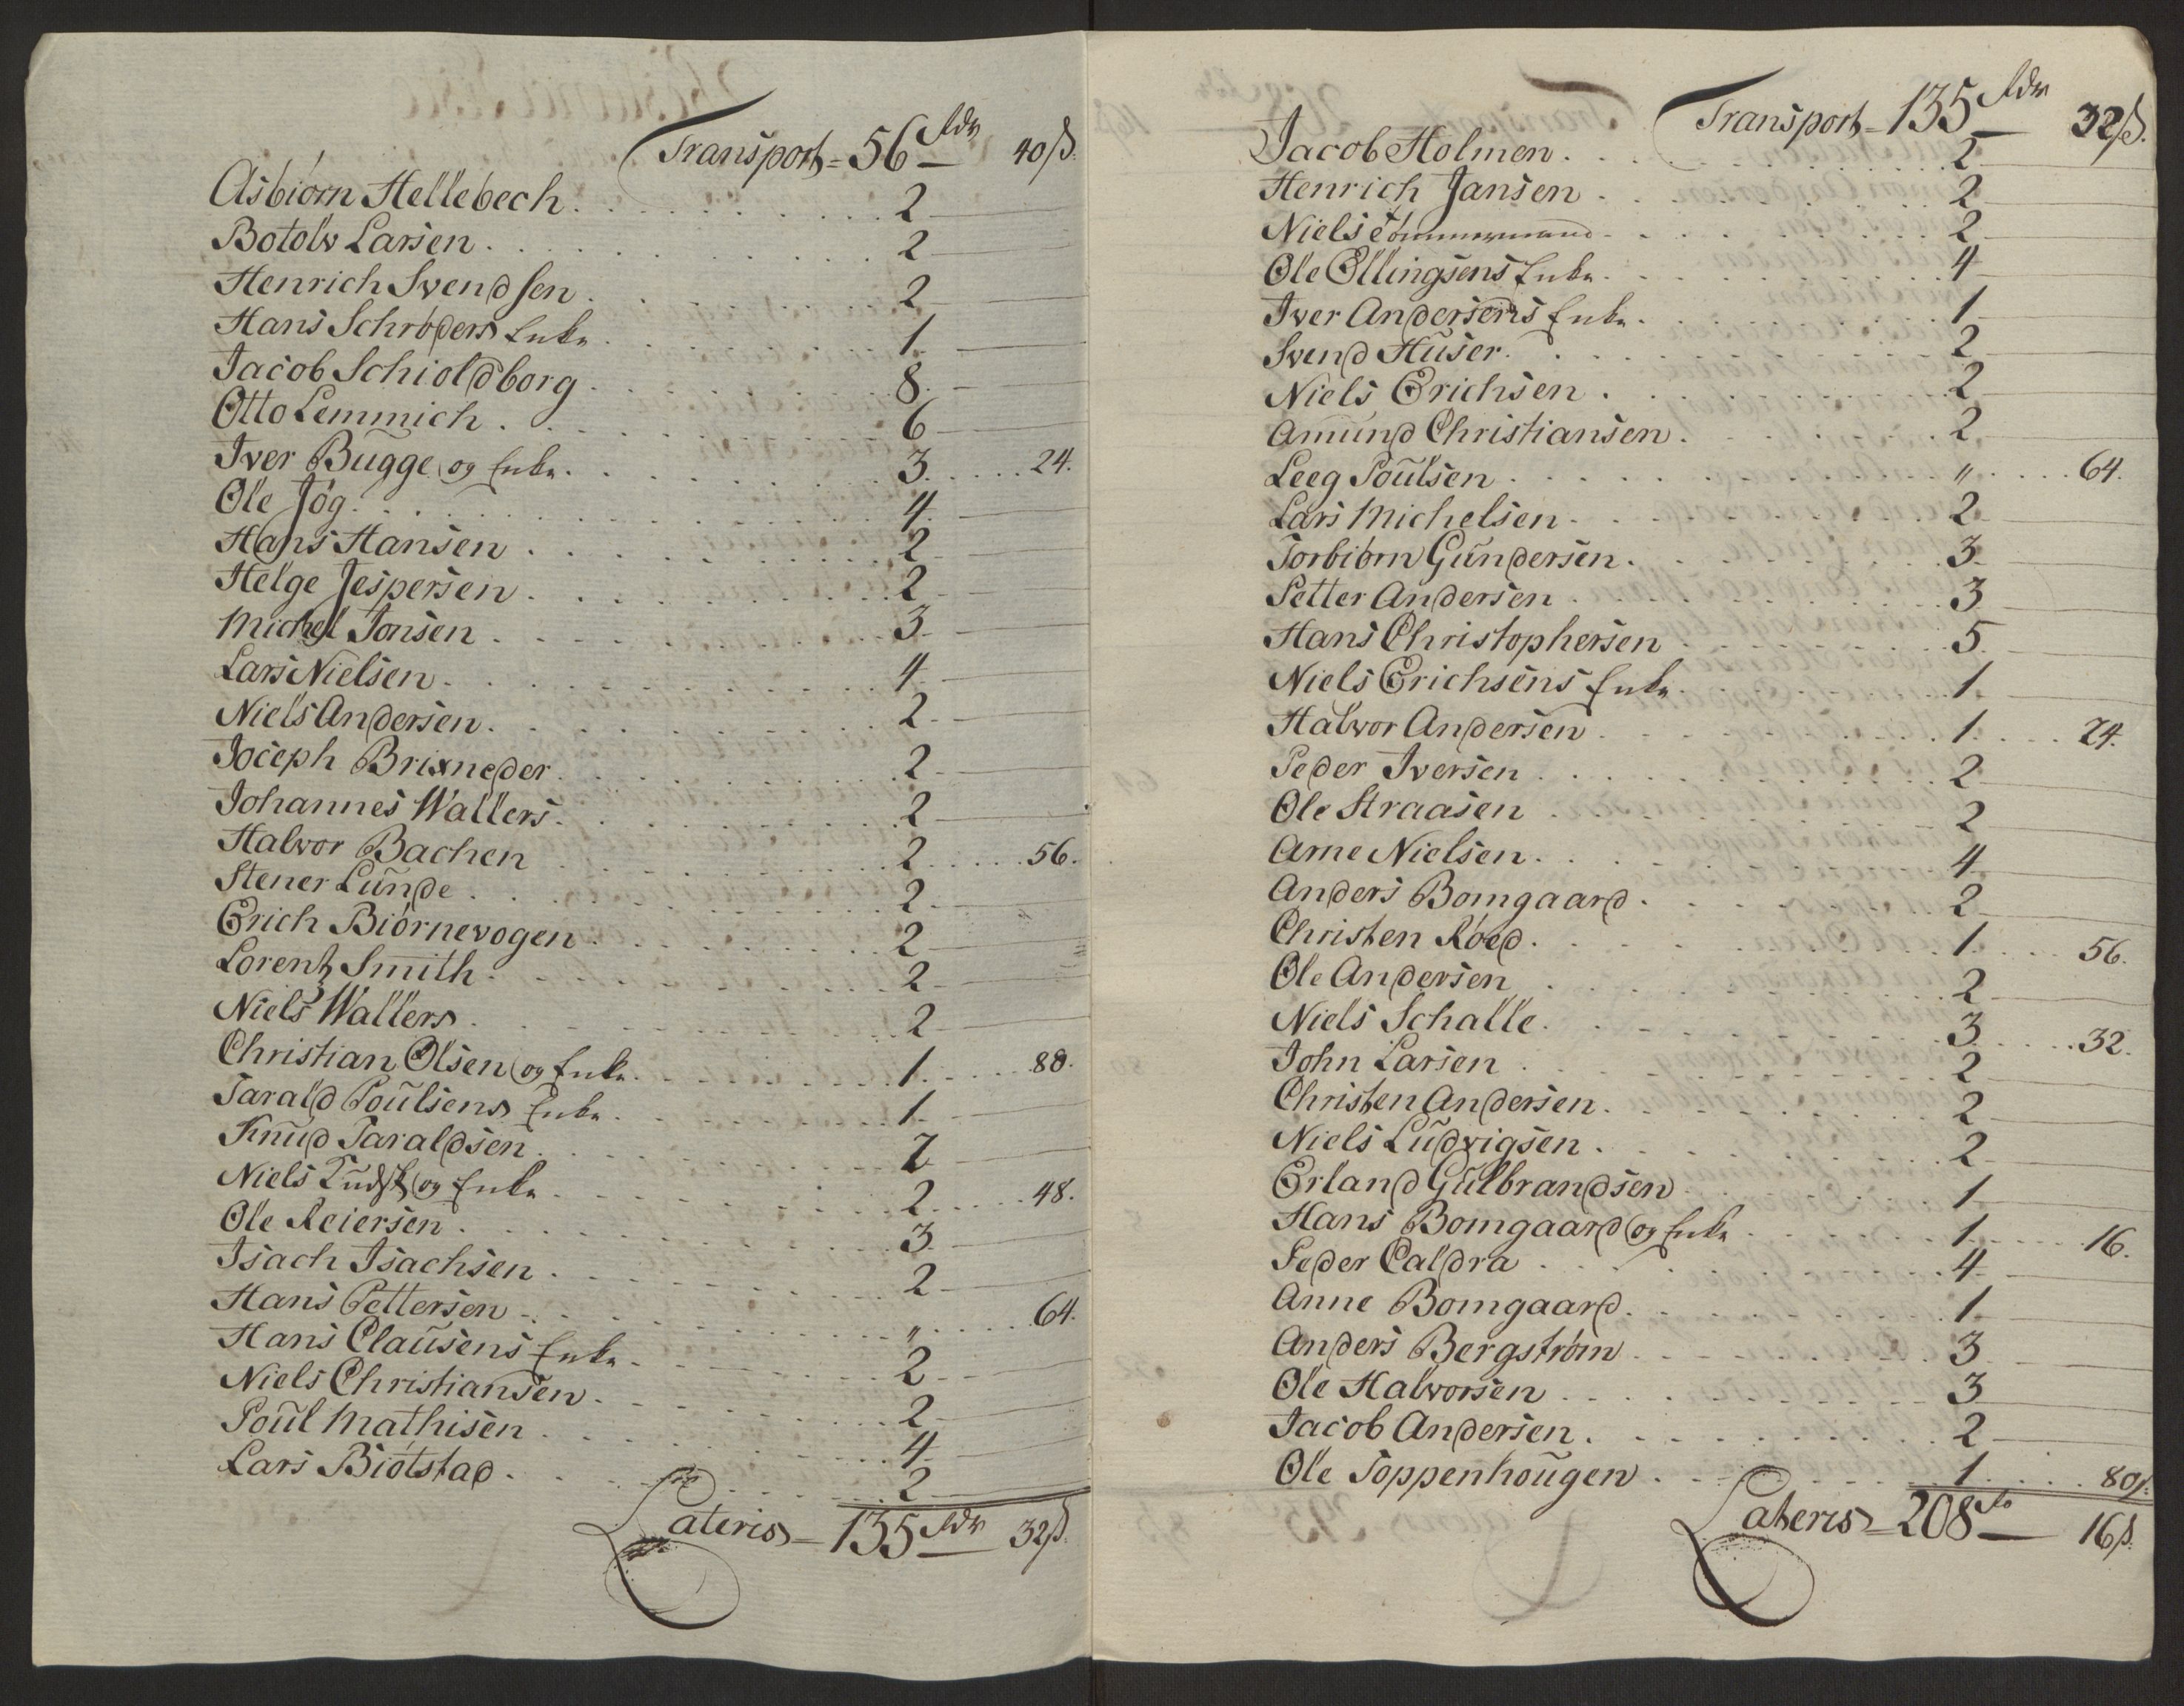 Transport = 56 Rdr 40 ß.
Asbiørn Hellebech . . . 2
Botolv Larsen . . . 2
Henrich Svendsen . . . 2
Hans Schrøders Enke . . . 1
Jacob Schioldborg . . . 8
Otto Lemmich . . . 6
Iver Bugge og Enke . . . 3 . . . 24.
Ole Jøg . . . 4
Hans Hansen . . . 2
Helge Jespersen . . . 2
Michel Jonsen . . . 3
Lars Nielsen . . . 4
Niels Andersen . . . 2
Joceph Brixneder . . . 2
Johannes Wallers . . . 2
Halvor Bachen . . . 2 . . . 56.
Stener Lunde . . . 2
Erich Biørnevogen . . . 2
Lorentz Smith . . . 2
Niels Wallers . . . 2
Christian Olsen og Enke . . . 1 . . . 88.
Tarald Poulsens Enke . . . 1
Knud Taraldsen . . . 2
Niels og Enke . . . 2 . . . 48.
Ole Reiersen . . . 3
Isach Isachsen . . . 2
Hans Pettersen . . . " . . . 64.
Hans Clausens Enke . . . 2
Niels Christiansen . . . 2
Poul Mathisen . . . 4
Lars Biøtstad . . . 2
Lateris = 135 Rdr 32 ß.
Transport = 135 Rdr 32 ß.
Jacob Holmen . . . 2
Henrich Jansen . . . 2
Niels Tømmermand . . . 2
Ole Ellingsens Enke . . . 4
Iver Andersens Enke . . . 1
Svend Huser . . . 2
Niels Erichsen . . . 2
Amund Christiansen . . . 2
Leeg Poulsen . . . " . . . 64.
Lars Michelsen . . . 2
Torbiørn Gundersen . . . 3
Petter Andersen . . . 3
Hans Christophersen . . . 5
Niels Erichsens Enke . . . 1
Halvor Andersen . . . 1 . . . 24.
Peder Iversen . . . 2
Ole Straasen . . . 2
Arne Nielsen . . . 4
Anders Bomgaard . . . 2
Christen Røed . . . 1 . . . 56.
Ole Andersen . . . 2
Niels Schalle . . . 3 . . . 32.
John Larsen . . . 2
Christen Andersen . . . 2
Niels Ludvigsen . . . 2
Erland Gulbrandsen . . . 1
Hans Bomgaard og Enke . . . 1 . . . 16.
Peder Caldra . . . 4
Anne Bomgaard . . . 1
Anders Bergstrøm . . . 3
Ole Halvorsen . . . 3
Jacob Andersen . . . 2
Ole Toppenhougen . . . 1 . . . 80 ß.
Lateris = 208 Rd 16 ß.